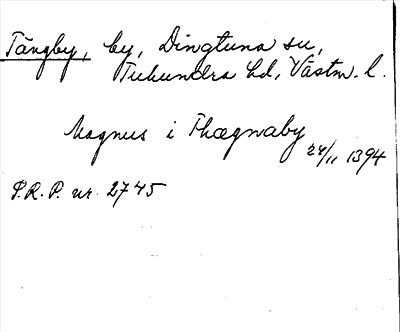 Tängby, by, Dingtuna sn,
Tuhundra hd, Västm. l.
Magnus i Thægnaby
24/11 1394
S.R.P. nr. 2745